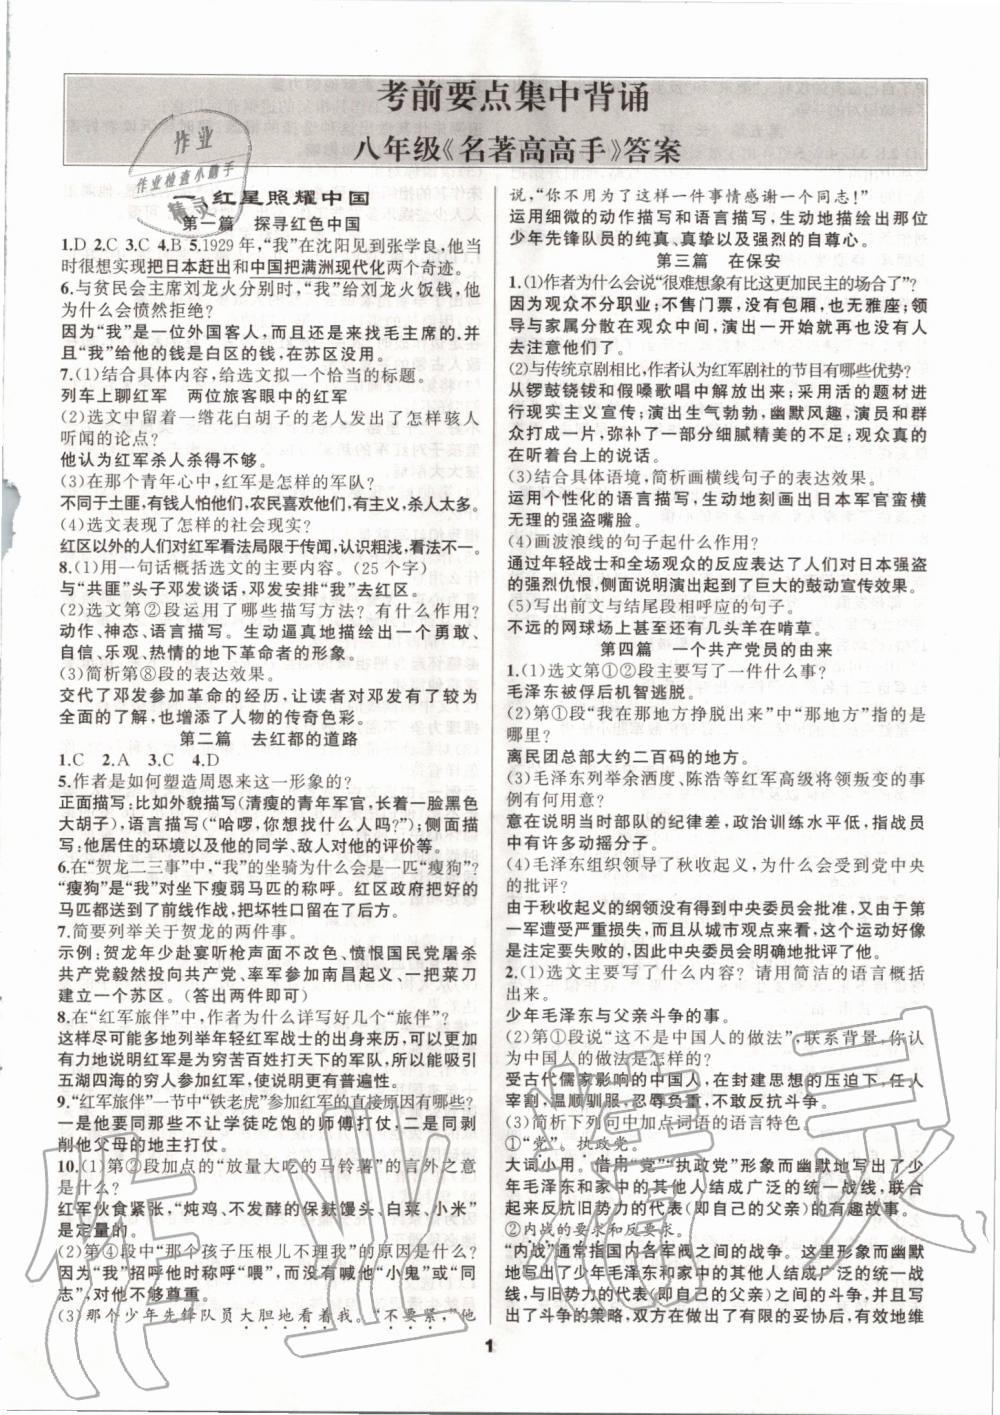 考前要点集中背诵
八年级《名著高高手》答案
作业
作业检查小帮手
精灵
一 红星照耀中国
第一篇 探寻红色中国
1.D 2.C 3.C 4.B 5.1929年，“我”在沈阳见到张学良，他当
时很想实现把日本赶出和中国把满洲现代化两个奇迹。
6.与贫民会主席刘龙火分别时，“我”给刘龙火饭钱，他
为什么会愤然拒绝？
因为“我”是一位外国客人，而且还是来找毛主席的，并
且“我”给他的钱是白区的钱，在苏区没用。
7.(1)结合具体内容，给选文拟一个恰当的标题。
列车上聊红军 两位旅客眼中的红军
(2)选文中留着一绺花白胡子的老人发出了怎样骇人
听闻的论点？
他认为红军杀人杀得不够。
(3)在那个青年心中，红军是怎样的军队？
不同于土匪，有钱人怕他们，农民喜欢他们，有主义，杀人太多。
(4)选文表现了怎样的社会现实？
红区以外的人们对红军看法局限于传闻，认识粗浅，看法不一。
8.(1)用一句话概括选文的主要内容。(25个字)
与“共匪”头子邓发谈话，邓发安排“我”去红区。
(2)选文第②段运用了哪些描写方法？有什么作用？
动作、神态、语言描写。生动逼真地描绘出一个勇敢、
自信、乐观、热情的地下革命者的形象。
(3)简析第⑧段的表达效果。
交代了邓发参加革命的经历，让读者对邓发有了较为
全面的了解，也增添了人物的传奇色彩。
第二篇 去红都的道路
1.C 2.A 3.C 4.D
5.作者是如何塑造周恩来这一形象的？
正面描写：比如外貌描写(清瘦的青年军官，长着一脸黑色
大胡子)，语言描写(“哈啰，你想找什么人吗？”)；侧面描
写：他居住的环境以及他的同学、敌人对他的评价等。
6.在“贺龙二三事”中，“我”的坐骑为什么会是一匹“瘦狗”？
“瘦狗”是“我”对坐下瘦弱马匹的称呼。红区政府把好的
马匹都送到了前线作战，把坏牲口留在了后方。
7.简要列举关于贺龙的两件事。
示例：贺龙年少赴宴听枪声面不改色、愤恨国民党屠杀
共产党毅然投向共产党、率军参加南昌起义、一把菜刀
建立一个苏区。(答出两件即可)
8.在“红军旅伴”中，作者为什么详写好几个“旅伴”？
这样尽可能多地列举年轻红军战士的出身来历，可以更加
有力地说明红军是为穷苦百姓打天下的军队，所以能吸引
五湖四海的穷人参加红军，使选材更有普遍性。
9.“红军旅伴”一节中“铁老虎”参加红军的直接原因有哪些？
一是他要同那些不让学徒吃饱的师傅打仗，二是同剥
削他父母的地主打仗。
10.(1)第②段加点的“放量大吃的马铃薯”的言外之意
是什么？
红军伙食紧张，“炖鸡、不发酵的保麸馒头、白菜、小米”
是定量的。
(2)第④段中“那个孩子压根儿不理我”的原因是什么？
因为“我”招呼他时称呼“喂”，而没有喊他“小鬼”或“同
志”，对他不够尊重。
(3)那个少年先锋队员大胆地看着我。“不要紧，”他
说，“你不用为了这样一件事情感谢一个同志！”
运用细微的动作描写和语言描写，生动地描绘出那位
少年先锋队员的纯真、真挚以及强烈的自尊心。
第三篇 在保安
1.(1)作者为什么会说“很难想象有比这更加民主的场合了”？
因为观众不分职业；不售门票，没有包厢，也无雅座；领
导与家属分散在观众中间，演出一开始就再也没有人
去注意他们了。
(2)与传统京剧相比，作者认为红军剧社的节目有哪些优势？
从锣鼓铙钹和假嗓歌唱中解放出来；采用活的题材进
行现实主义宣传；演出生气勃勃，幽默风趣，演员和群
众打成一片，弥补了一部分细腻精美的不足；观众真的
在听着台上的说话。
(3)结合具体语境，简析画横线句子的表达效果。
运用个性化的语言描写，生动地刻画出日本军官蛮横
无理的强盗嘴脸。
(4)画波浪线的句子起什么作用？
通过年轻战士和全场观众的反应表达了人们对日本强盗
的强烈仇恨，侧面说明演出起到了巨大的鼓动宣传效果。
(5)写出前文与结尾段相呼应的句子。
不远的网球场上甚至还有几头羊在啃草。
第四篇 一个共产党员的由来
1.(1)选文第①②段主要写了一件什么事？
毛泽东被俘后机智逃脱。
(2)第①段“我在那地方挣脱出来”中“那地方”指的是
哪里？
离民团总部大约二百码的地方。
(3)毛泽东列举余洒度、陈浩等红军高级将领叛变的事
例有何用意？
意在说明当时部队的纪律差，政治训练水平低，指战员
中有许多动摇分子。
(4)毛泽东组织领导了秋收起义，为什么会受到党中央
的批评？
由于秋收起义的纲领没有得到中央委员会批准，又由于第
一军遭受严重损失，而且从城市观点来看，这个运动好像
是注定要失败的，因此中央委员会明确地批评了他。
2.(1)选文主要写了什么内容？请用简洁的语言概括
出来。
少年毛泽东与父亲斗争的事。
(2)第①段说“这不是中国人的做法”，联系背景，你认
为中国人的做法是怎样的？
受古代儒家影响的中国人，在封建思想的压迫下，任人
宰割，温顺驯服，忍辱负重，不敢反抗斗争。
(3)简析下列句中加点词语的语言特色。
①“党”。执政党。
大词小用。借用“党”“执政党”形象而幽默地写出了少
年毛泽东和家中的其他人结成广泛的统一战线，联合
起来反抗旧势力的代表(即自己的父亲)的有趣故事。
②内战的要求和反要求。
“内战”通常指国内各军阀之间的战争。这里形象而幽默
地写出了少年毛泽东和家中的其他人结成广泛的统一战
线，与旧势力的代表(即自己的父亲)之间的斗争，并且写
出了斗争的策略，双方在做出了有限的妥协后，有效地维
1
作业精灵